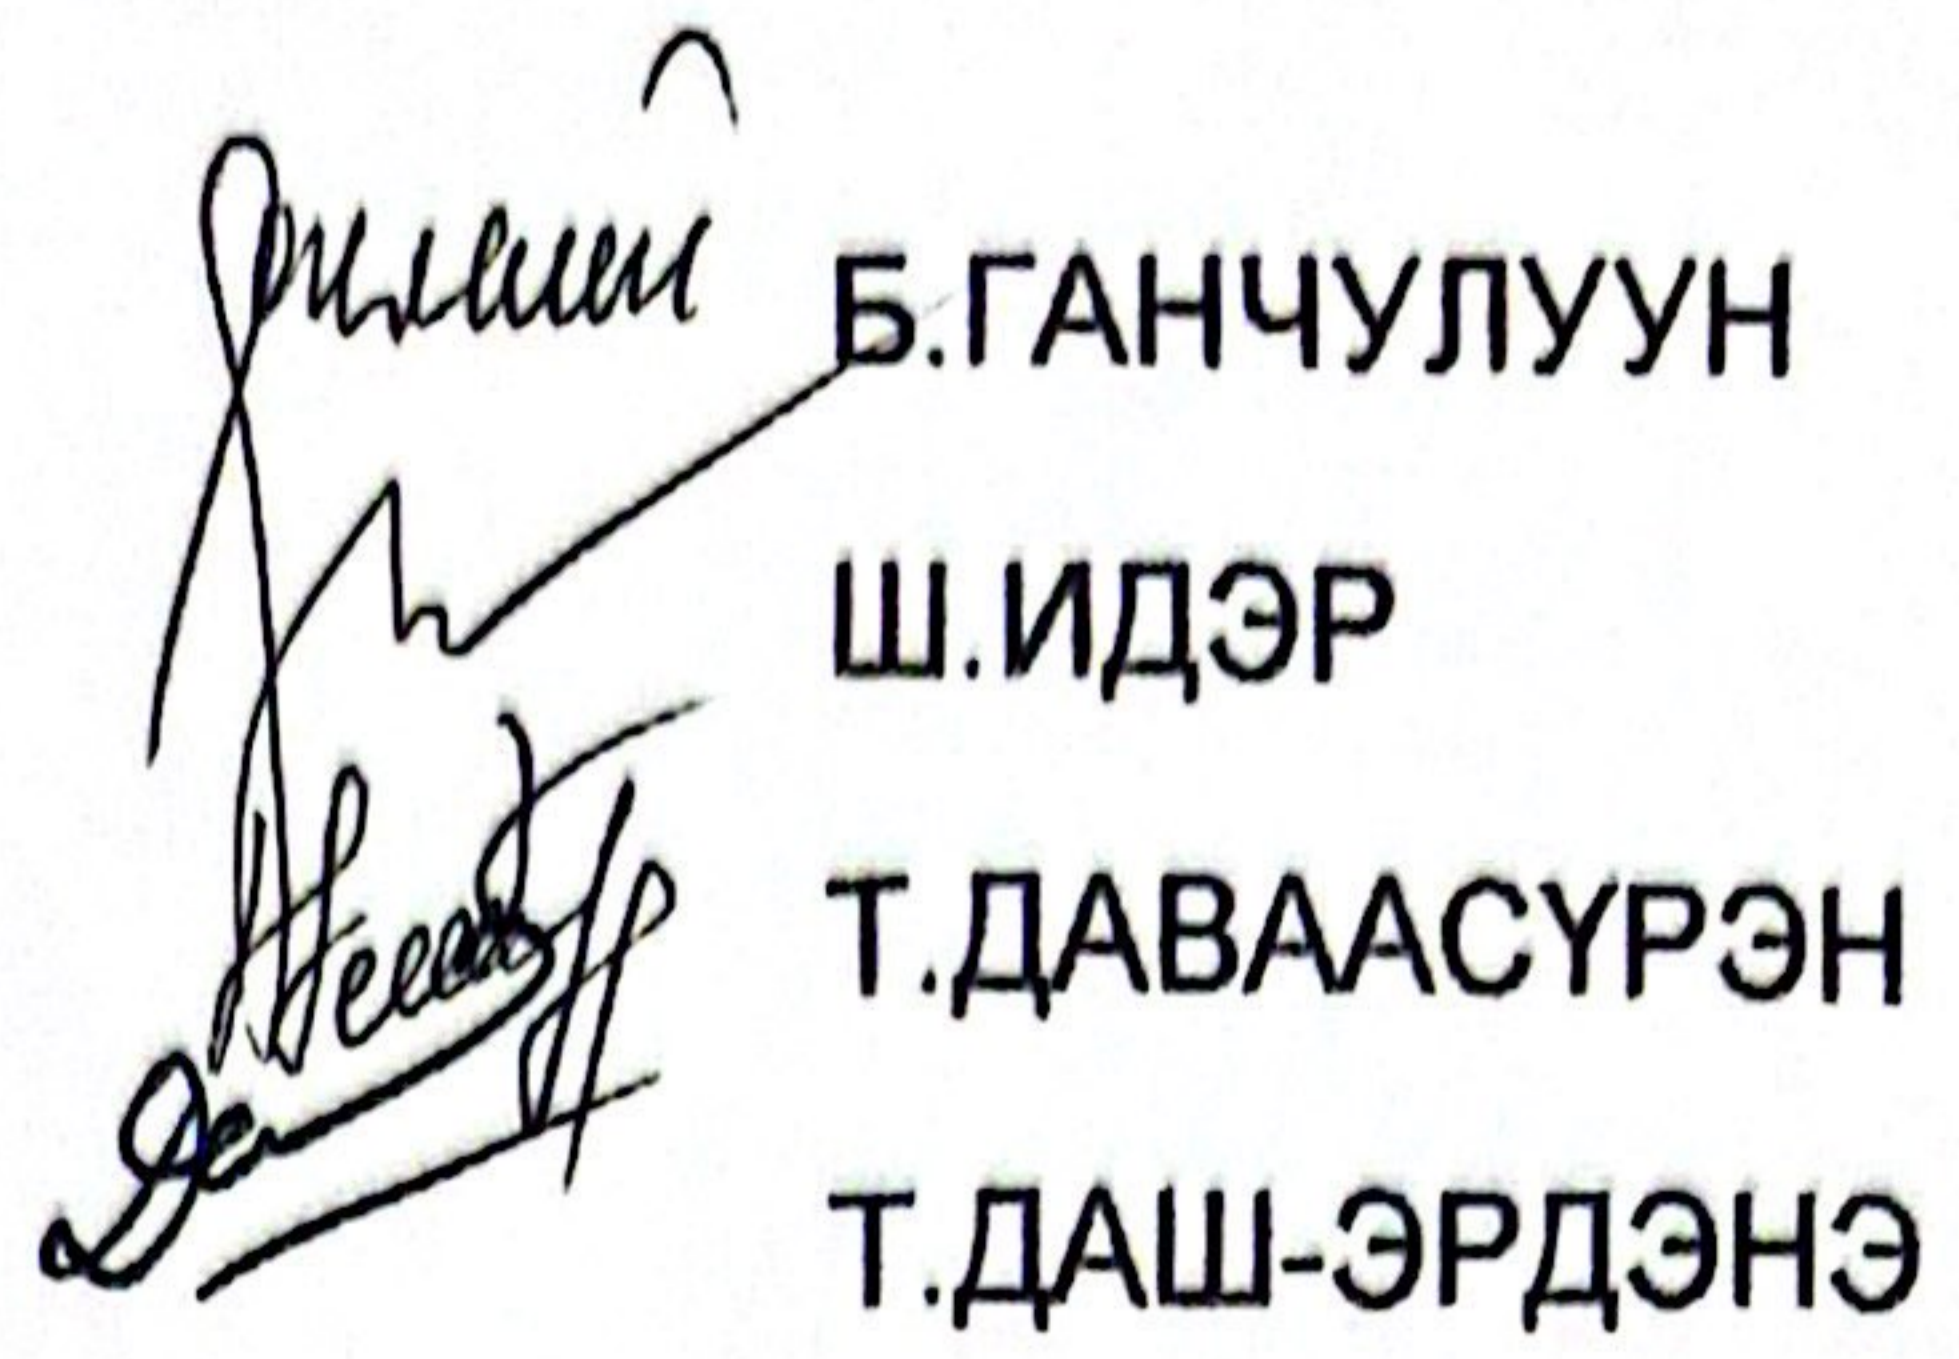 Б.ГАНЧУЛУУН
Ш.ИДЭР
Т.ДАВААСҮРЭН
Т.ДАШ-ЭРДЭНЭ